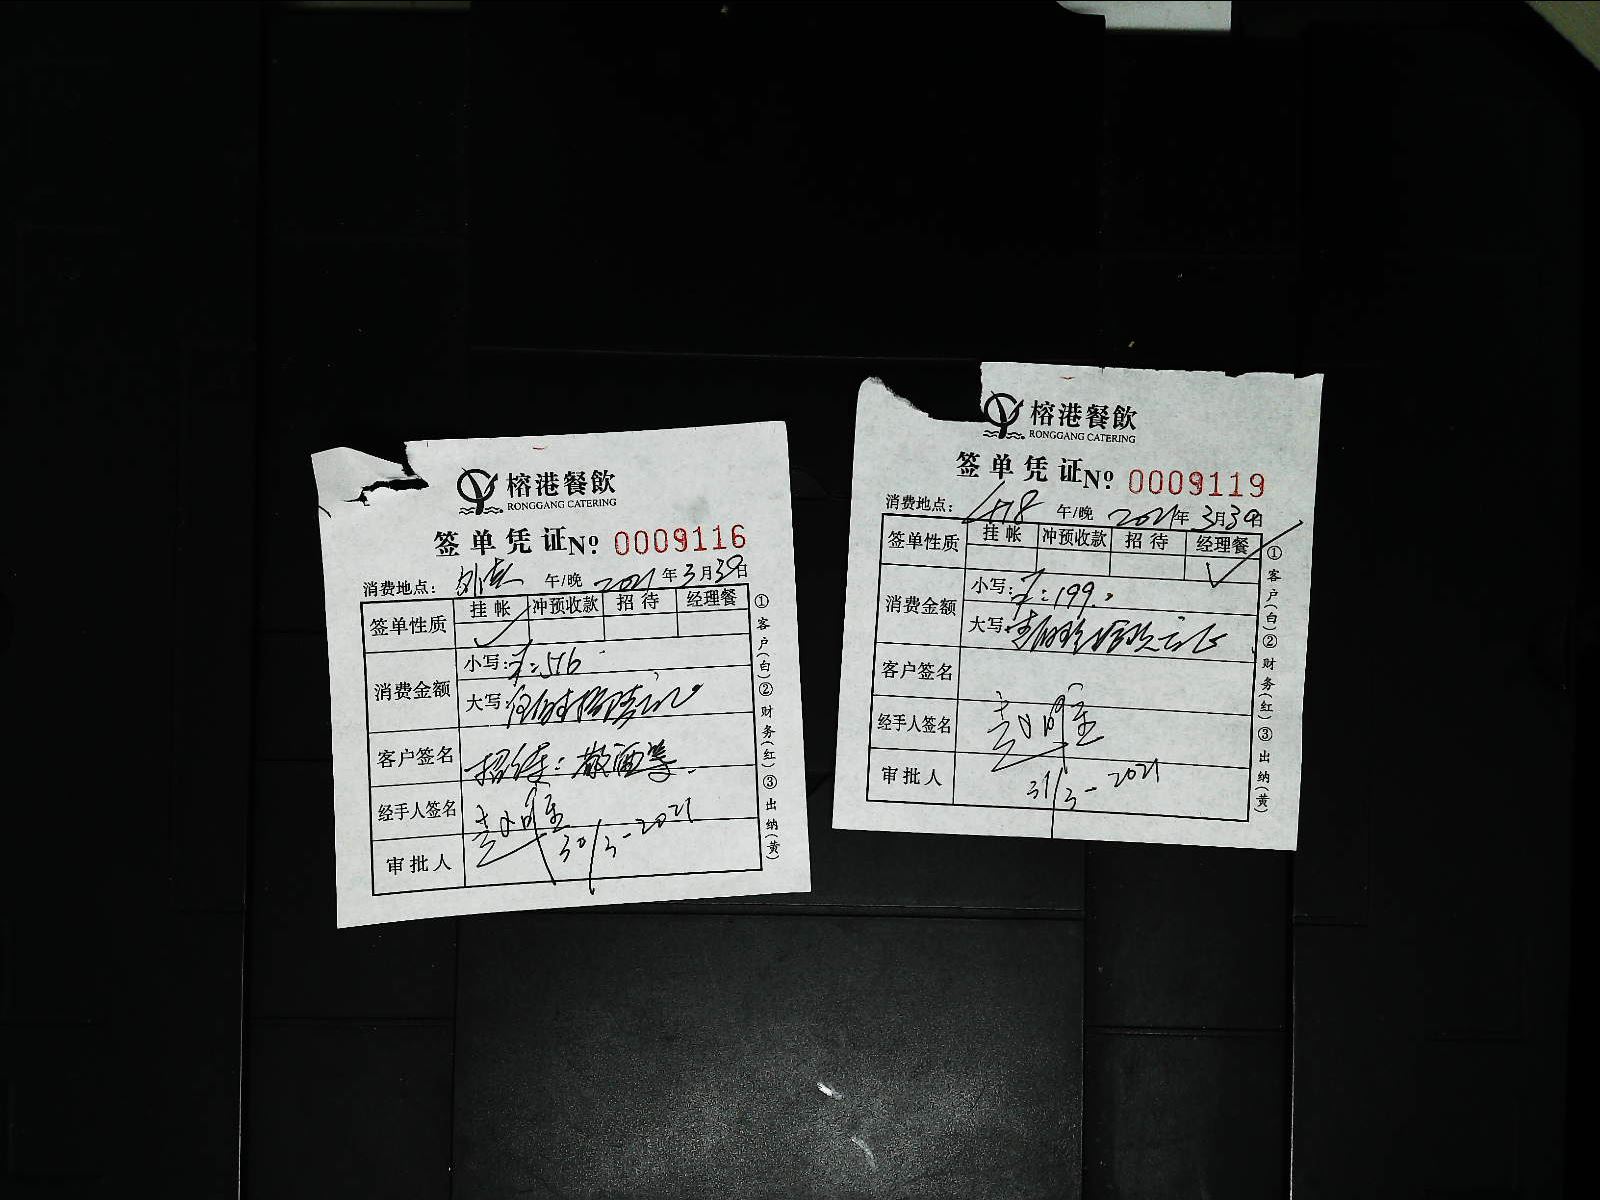 榕港餐飲
RONGGANG CATERING
签单凭证No 0009116
消费地点: 午/晚 2021年3月30日
签单性质 挂帐 冲预收款 招待 经理餐
消费金额 小写: ¥:516
大写: 伍佰壹拾陆元正
客户签名 招待: 散酒等.
经手人签名
审批人 30/3-2021
①客户(白)②财务(红)③出纳(黄)
榕港餐飲
RONGGANG CATERING
签单凭证No 0009119
消费地点: 478 午/晚 2021年3月30日
签单性质 挂帐 冲预收款 招待 经理餐
消费金额 小写: ¥:199.
大写: 壹佰玖拾玖元正
客户签名
经手人签名
审批人 31/3-2021
①客户(白)②财务(红)③出纳(黄)